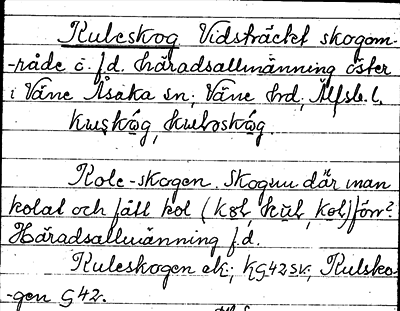 Kuleskog Vidsträckt skogom-
-råde o. f.d. häradsallmänning öster
i Väne Åsaka sn; Väne hrd; Älfsb. l.
Kole-skogen. Skogen där man
kolat och fått kol (kol, kul, kol) förr?
Häradsallmänning f.d.
Kuleskogen ek.; KG42SV.; Kulsko-
-gen G42.